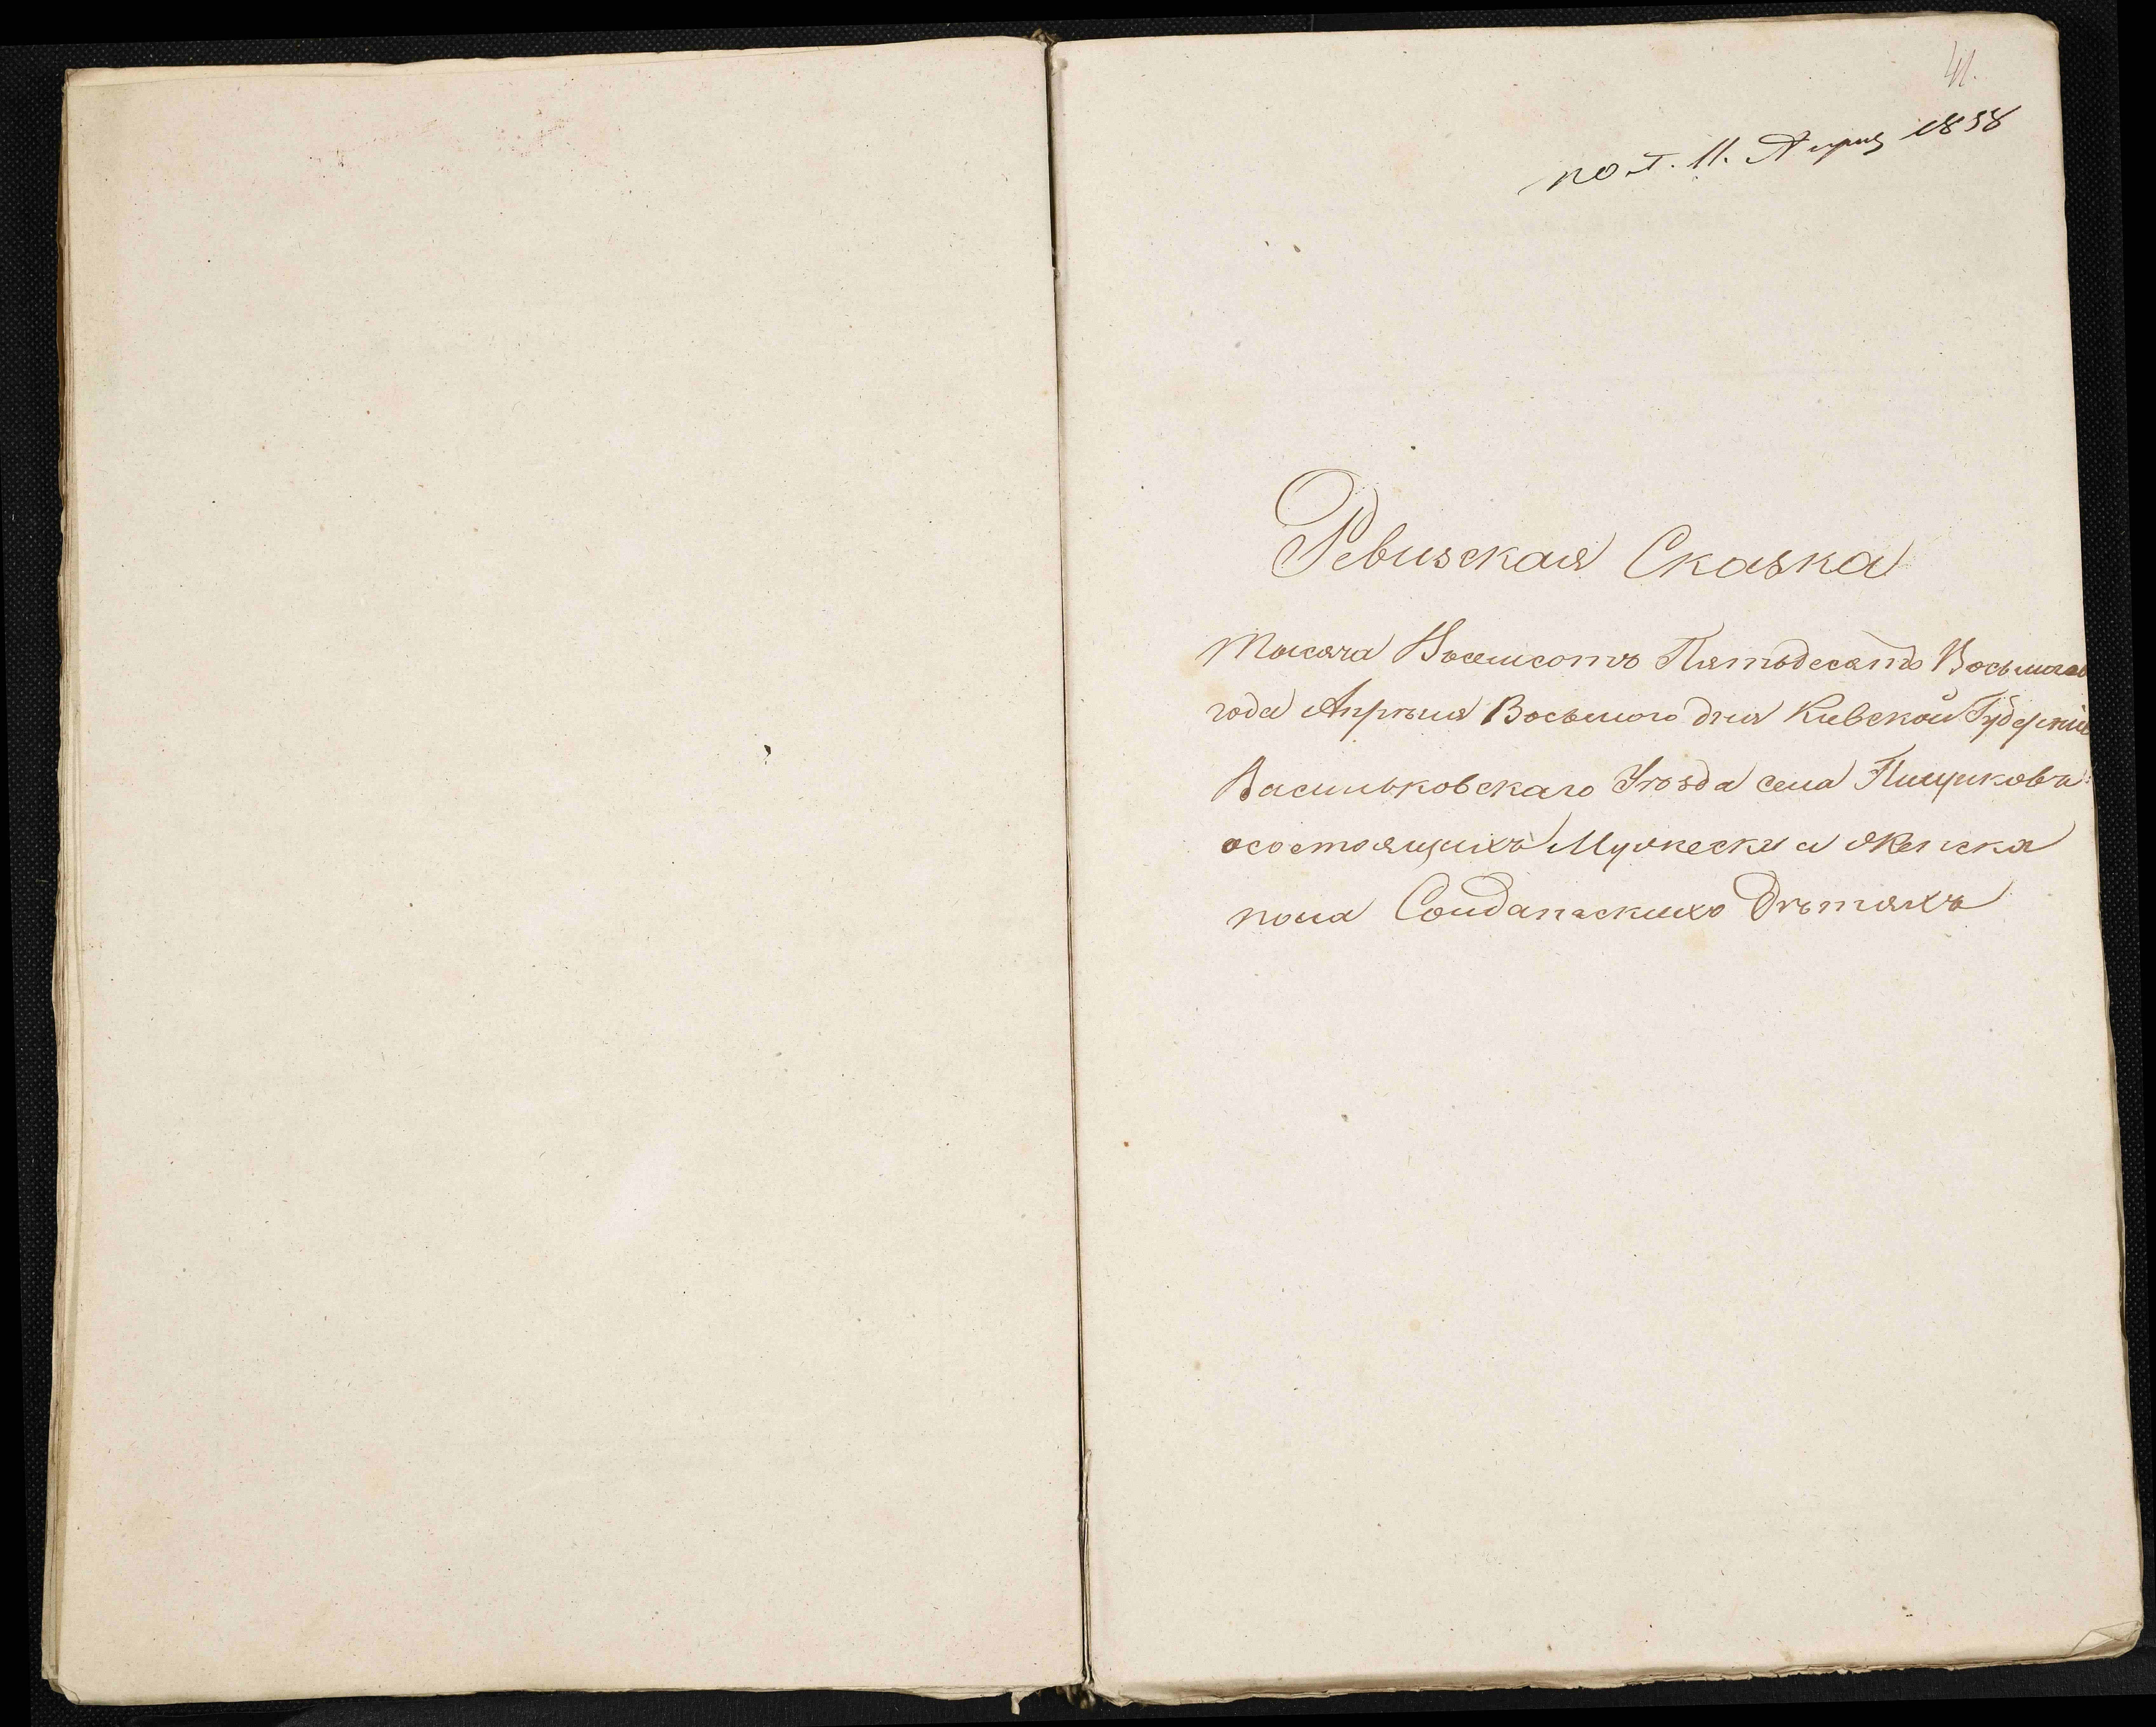 41.
пол. 11. Апреля 1858
Ревизская Сказка
тысяча Восемсотъ Пятьдесятъ Восьмаго
года Апрѣля Восьмого дня Киевской Губернии
Васильковскаго Уѣзда села Пищиковъ
осостоящихъ Мужеска и Женска
пола Солдатскихъ Дѣтяхъ